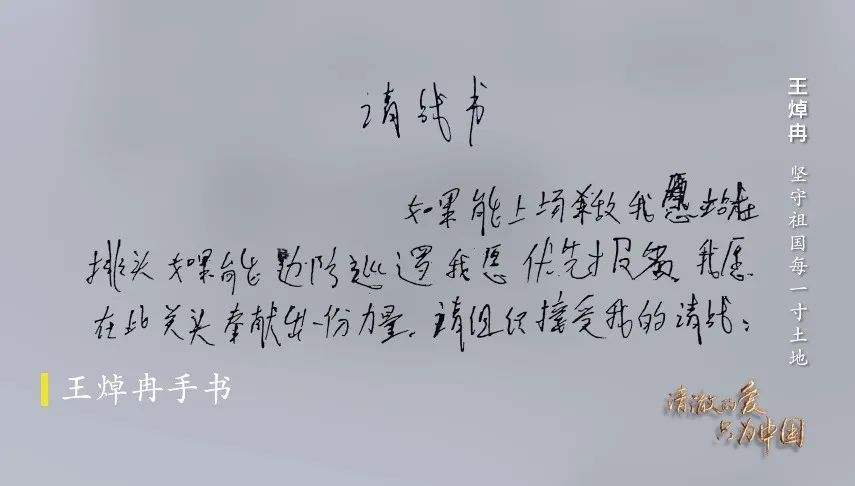 请战书
如果能上场杀敌我愿站在
排头如果能边防巡逻我愿优先报名我愿
在此关头奉献出一份力量，请组织接受我的请战：
王焯冉 坚守祖国每一寸土地
王焯冉手书
清澈的爱
只为中国